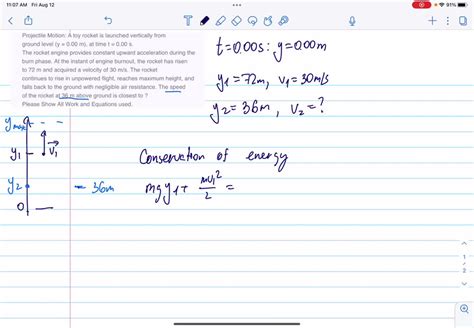 11:07 AM Fri Aug 12
91%
Projectile Motion: A toy rocket is launched vertically from
ground level (y = 0.00 m), at time t = 0.00 s.
The rocket engine provides constant upward acceleration during the
burn phase. At the instant of engine burnout, the rocket has risen
to 72 m and acquired a velocity of 30 m/s. The rocket
continues to rise in unpowered flight, reaches maximum height, and
falls back to the ground with negligible air resistance. The speed
of the rocket at 36 m above ground is closest to ?
Please Show All Work and Equations used.
t=0.00s: y=0.00m
y1=72m, v1=30m/s
y2=36m, v2=?
ymax
y1
v1
y2
36m
0
Conservation of energy
mgy1+ mv1²/2 =
1
3